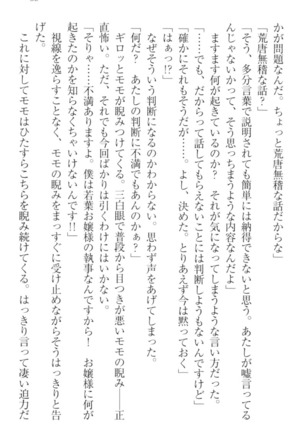 かが問題なんだ。ちょっと荒唐無稽な話だからな」
「荒唐無稽な話?」
「そう、多分言葉で説明されても簡単には納得できないと思う。あたしが嘘言ってる
んじゃないかって、そう思っちまうような内容なんだよ」
ますます何が起きているのか? それが気になってしまうような言い方だった。
「……でも、だからって話してもらえないことには判断しようがないんですけど」
「確かにそれもそうだが……。よし、決めた。とりあえず今は黙っておく」
「はぁっ!?」
なぜそういう判断になるのかわからない。思わず声をあげてしまった。
「何だ? あたしの判断に不満でもあんのか? ああ?」
ギロッとモモが睨みつけてくる。三白眼で普段から目つきが悪いモモの睨み――正
直怖い。ただ、それでも今回ばかりは引くわけにはいかない。
「そりゃ……不満ありますよ。僕は若葉お嬢様の執事なんですから! お嬢様に何が
起きたのかを知らなくちゃいけないんです!!」
視線を逸らすことなく、モモの睨みをまっすぐに受け止めながらそうはっきりと告
げた。
これに対してモモはひたすらこちらを睨み続けてくる。はっきり言って凄い迫力だ